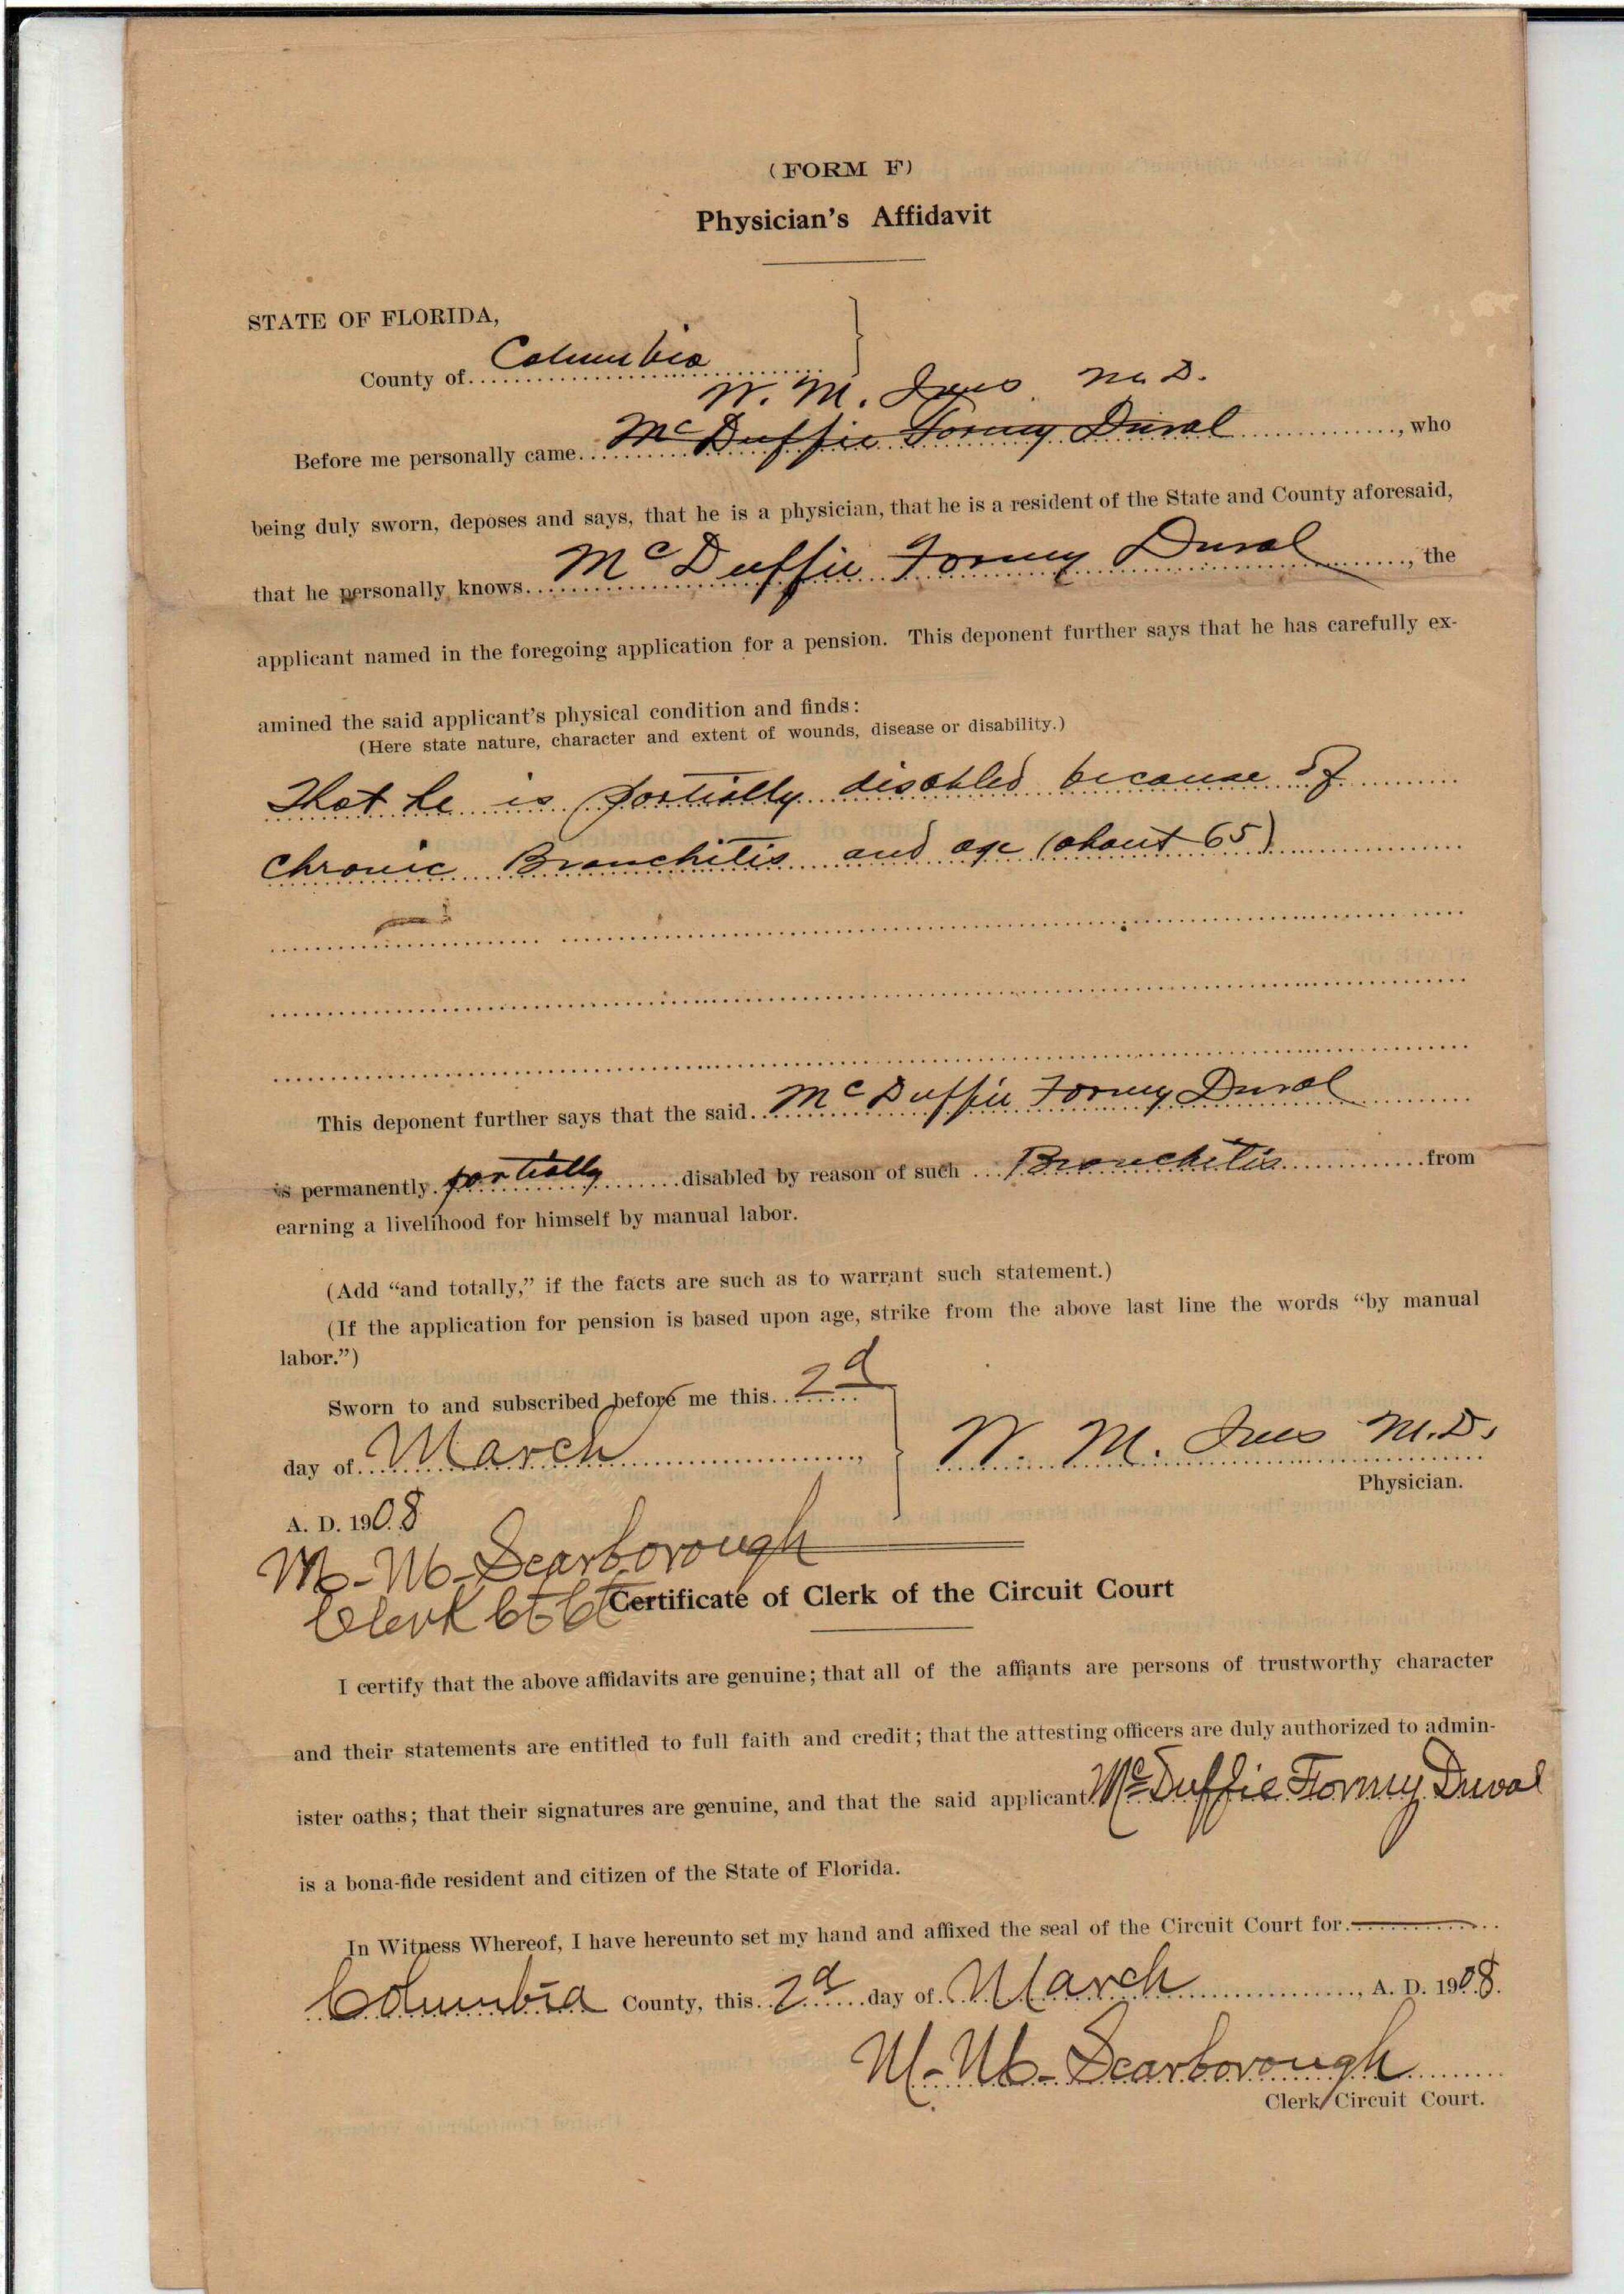 (FORM F)
Physician's Affidavit
STATE OF FLORIDA,
County of Columbia
W. M. Ives M.D.
Before me personally came McDuffie Formy Duval, who
being duly sworn, deposes and says, that he is a physician, that he is a resident of the State and County aforesaid,
that he personally knows McDuffie Formy Duval, the
applicant named in the foregoing application for a pension. This deponent further says that he has carefully ex-
amined the said applicant's physical condition and finds:
(Here state nature, character and extent of wounds, disease or disability.)
That he is partially disabled because of
Chronic Bronchitis and age (about 65)
This deponent further says that the said McDuffie Formy Duval
is permanently partially disabled by reason of such Bronchitis from
earning a livelihood for himself by manual labor.
(Add "and totally," if the facts are such as to warrant such statement.)
(If the application for pension is based upon age, strike from the above last line the words "by manual
labor.")
Sworn to and subscribed before me this 2d
day of March,
W. M. Ives M.D.
Physician.
A. D. 1908
M. M. Scarborough
Clerk Ct Ct
Certificate of Clerk of the Circuit Court
I certify that the above affidavits are genuine; that all of the affiants are persons of trustworthy character
and their statements are entitled to full faith and credit; that the attesting officers are duly authorized to admin-
ister oaths; that their signatures are genuine, and that the said applicant McDuffie Formy Duval
is a bona-fide resident and citizen of the State of Florida.
In Witness Whereof, I have hereunto set my hand and affixed the seal of the Circuit Court for
Columbia County, this 2d day of March, A. D. 1908.
M. M. Scarborough
Clerk Circuit Court.